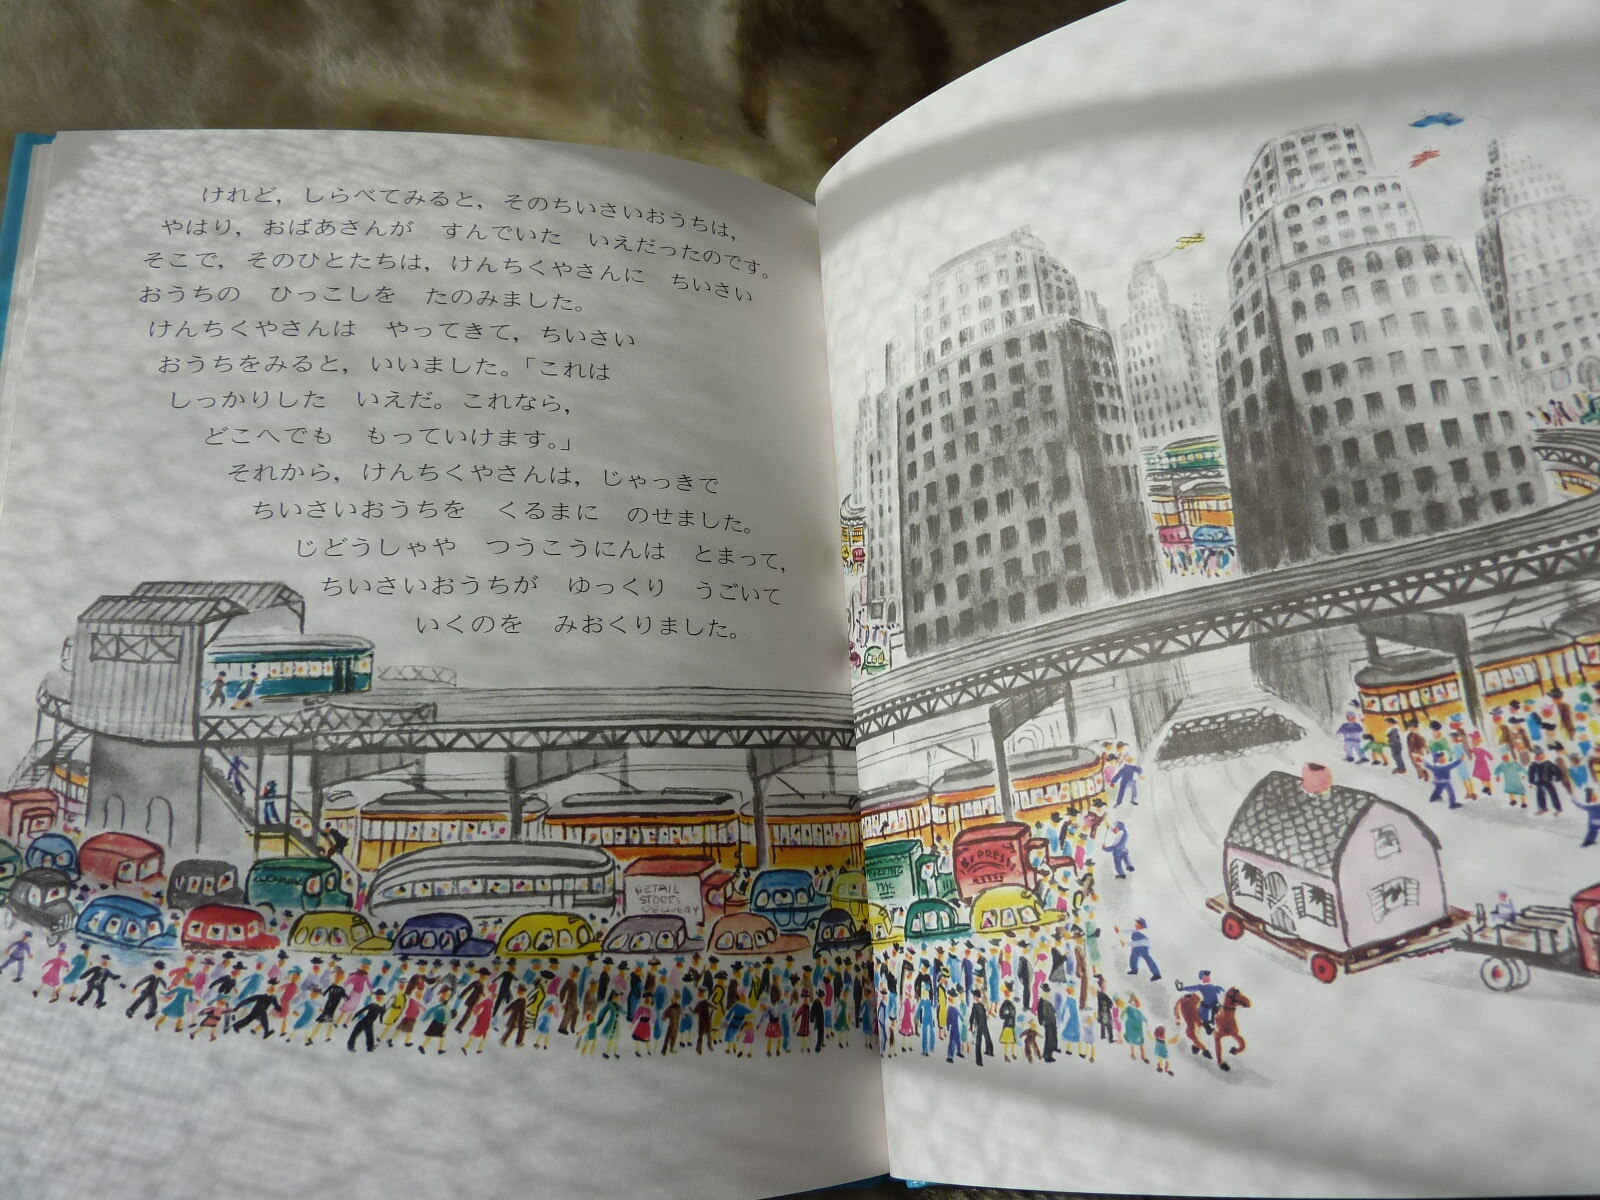 けれど，しらべてみると，そのちいさいおうちは，
やはり，おばあさんが　すんでいた　いえだったのです。
そこで，そのひとたちは，けんちくやさんに　ちいさい
おうちの　ひっこしを　たのみました。
けんちくやさんは　やってきて，ちいさい
おうちをみると，いいました。「これは
しっかりした　いえだ。これなら，
どこへでも　もっていけます。」
それから，けんちくやさんは，じゃっきで
ちいさいおうちを　くるまに　のせました。
じどうしゃや　つうこうにんは　とまって，
ちいさいおうちが　ゆっくり　うごいて
いくのを　みおくりました。
CLEANING
RETAIL
STORES
DELIVERY